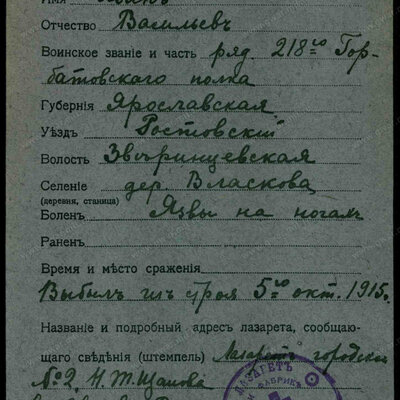 Имя
Отчество Васильевъ
Воинское званіе и часть ряд. 218го Гор-
батовскаго полка
Губернія Ярославская
Уѣздъ Ростовскій
Волость Звѣринцевская
Селеніе дер. Власкова
(деревня, станица)
Боленъ Язвы на ногахъ
Раненъ
Время и мѣсто сраженія
Выбылъ изъ строя 5го окт. 1915г.
Названіе и подробный адресъ лазарета, сообщаю-
щаго свѣдѣнія (штемпель) Лазаретъ городской
№2, Н. Т. Щапова
ЛАЗАРЕТЪ
ФАБРИК